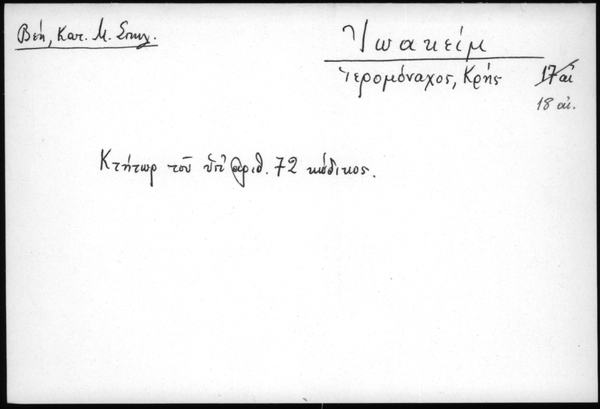 Βέη, Κατ. Μ. Σπηλ.
Ἰωακείμ
Ἱερομόναχος, Κρής
17 αἰ
18 αἰ.
Κτήτωρ τοῦ ὑπ' ἀριθ. 72 κώδικος.